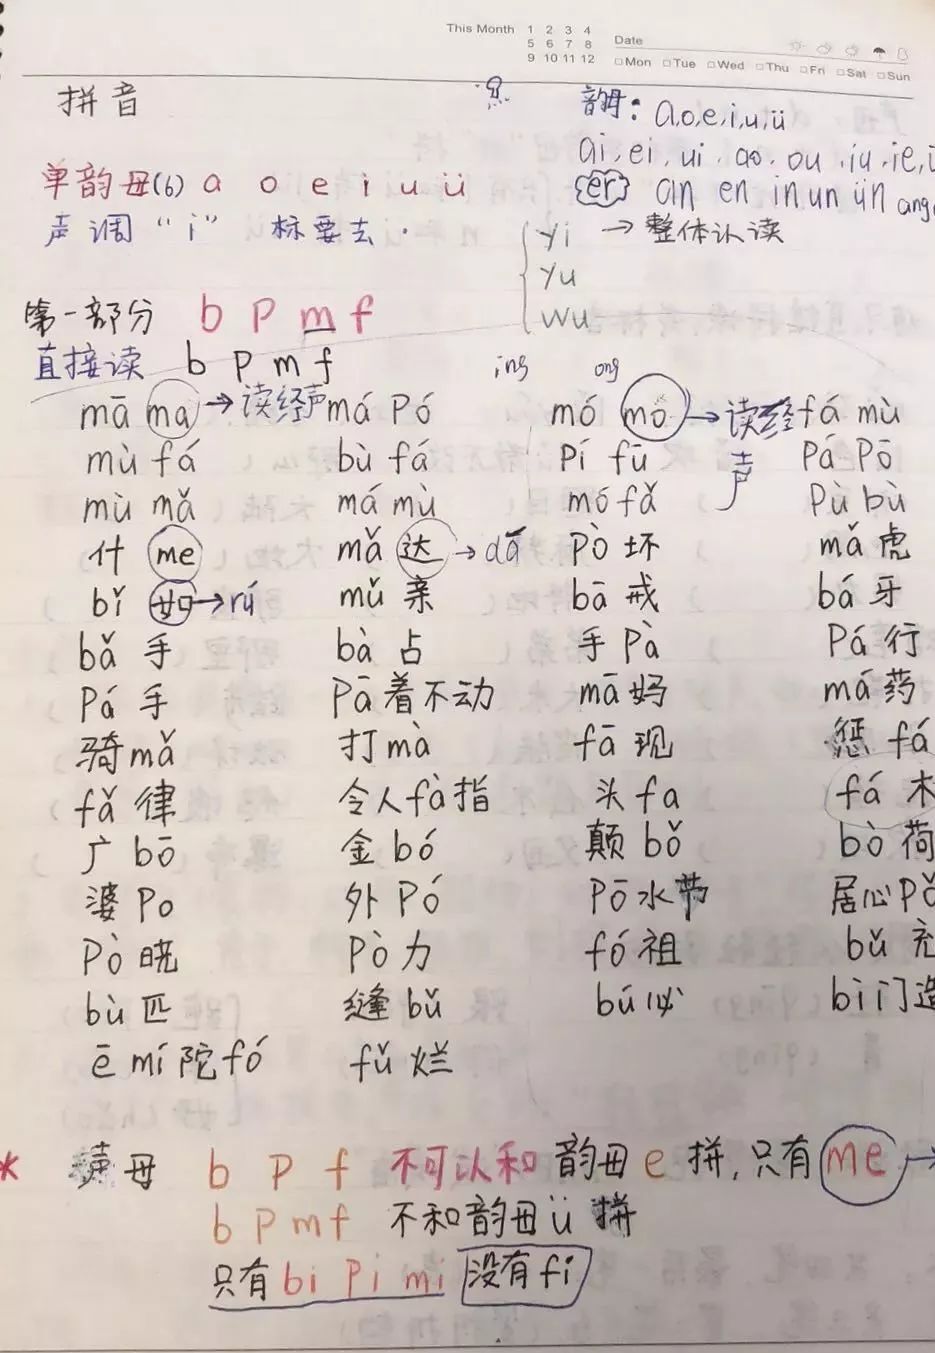 This Month 1 2 3 4
5 6 7 8
9 10 11 12
Date
□Mon □Tue □Wed □Thu □Fri □Sat □Sun
拼音
韵母: a,o,e,i,u,ü
ai,ei,ui,ao,ou,iu,ie,
单韵母(6) a o e i u ü
er an en in un ün ang
声调 "i" 标要去.
yi → 整体认读
yu
wu
第一部分 b p m f
直接读 b p m f
ing ong
mā ma → 读经声 má pó mó mo → 读经声 fá mù
mù fá bù fá pí fū pá pō
mù mǎ má mù mó fǎ pù bù
什 me mǎ 达 → dá pò 坏 mǎ 虎
bǐ 如 → rú mǔ 亲 bā 戒 bá 牙
bǎ 手 bà 占 手 pà pá 行
pá 手 pā 着不动 mā 妈 má 药
骑 mǎ 打 mà fā 现 惩 fá
fǎ 律 令人 fà 指 头 fa fá 木
广 bō 金 bó 颠 bǒ bò 荷
婆 po 外 pó pō 水节 居心 pǒ
pò 晓 pò 力 fó 祖 bǔ 充
bù 匹 缝 bǔ bú 必 bì 门造
ē mí 陀 fó fǔ 烂
* 声母 b p f 不可以和韵母 e 拼, 只有 me →
b p m f 不和韵母 ü 拼
只有 bi pi mi 没有 fi